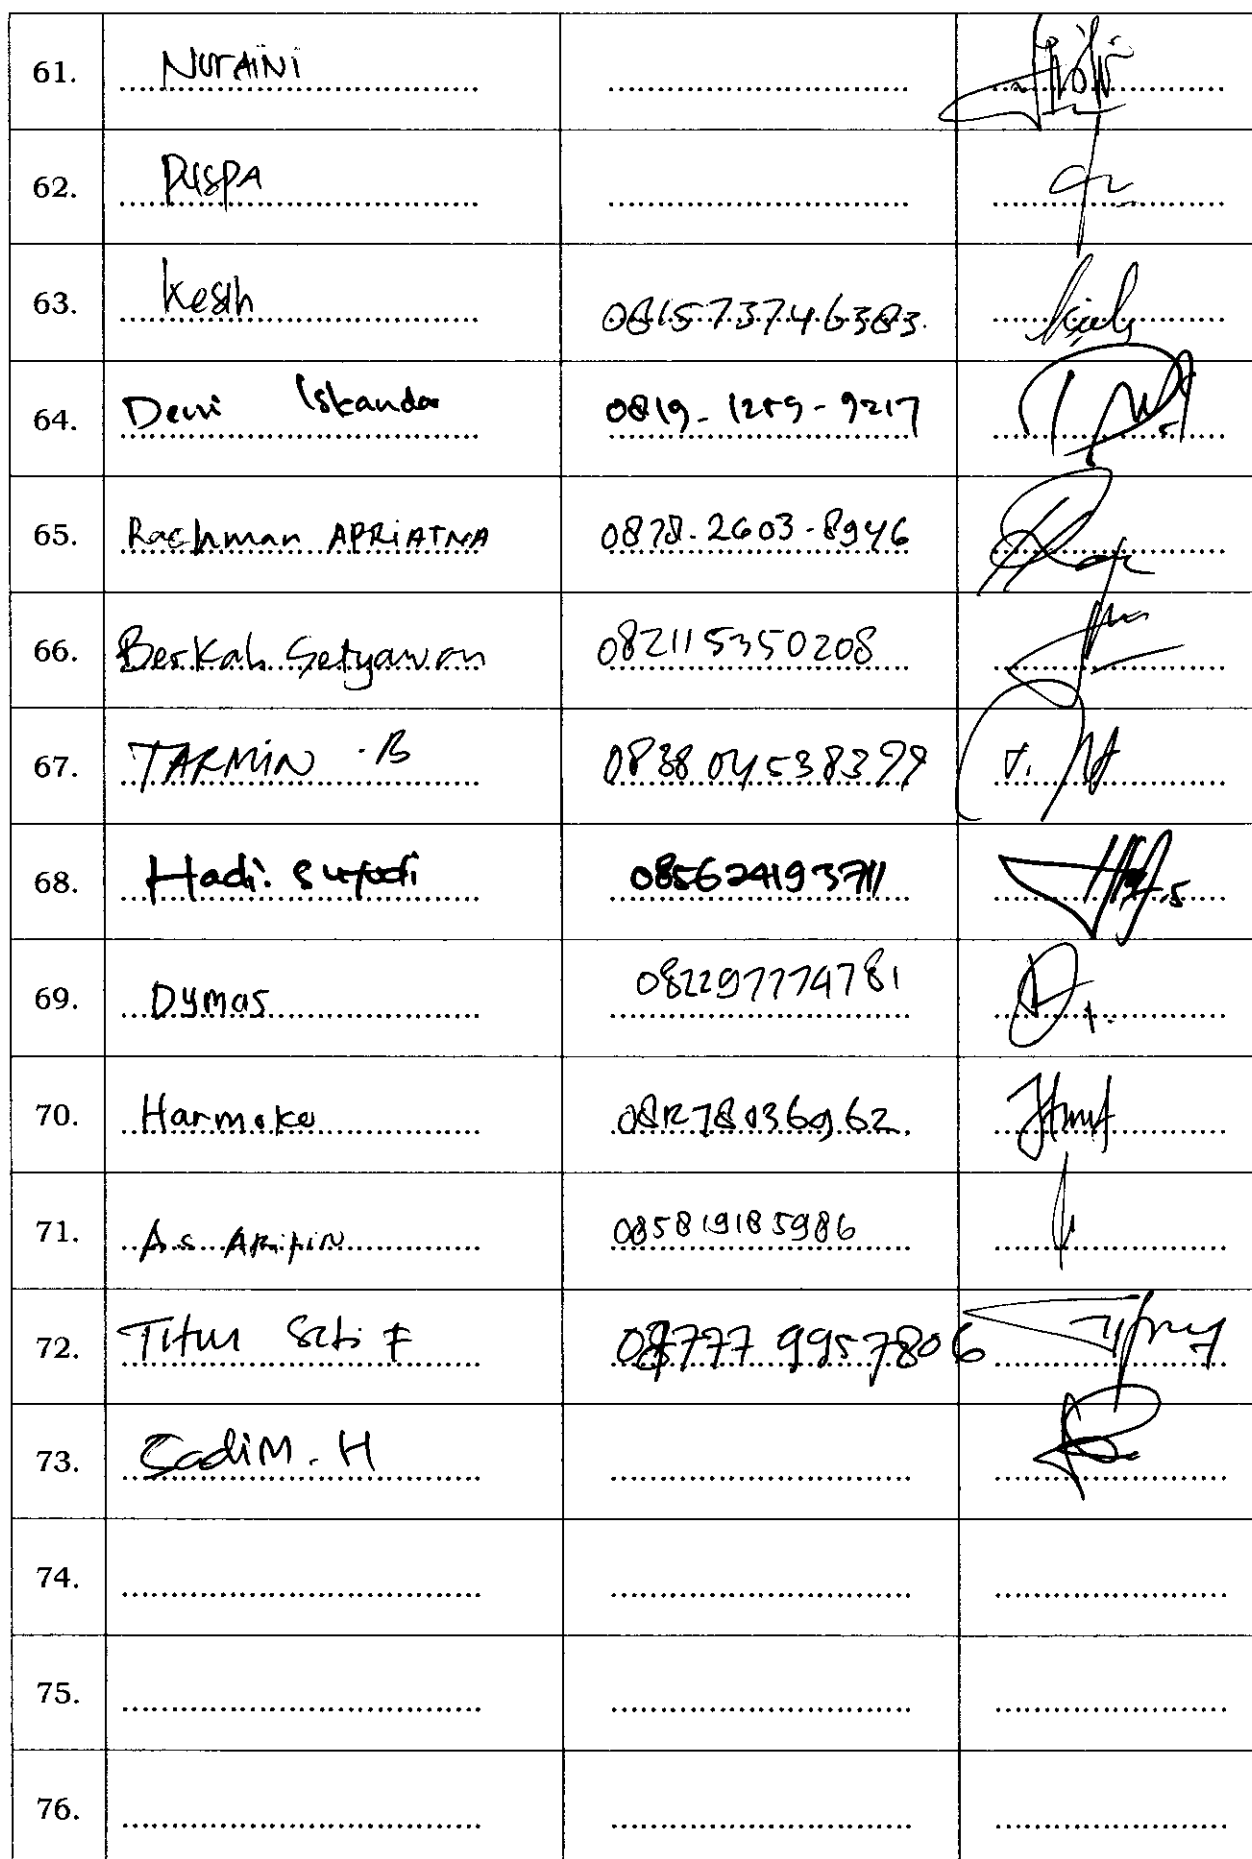 61. NURAINI
62. PUSPA
63. Kesih 081573746383.
64. Dewi Iskandar 0819-1259-9217
65. Rachman APRIATNA 0878-2603-8946
66. Berkah Setyawan 082115350208
67. TARMIN .B
68. Hadi. 085624193711
69. Dymas 082297774781
70. Harmoko 081278036962.
71. As ARipiN 085819185986
72. Titun 087779957806
73. SadiM. H
74.
75.
76.